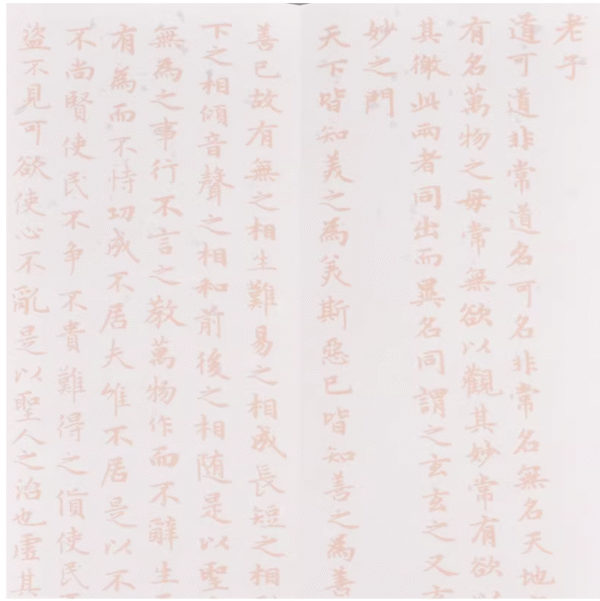 老子
道可道非常道名可名非常名無名天地
有名萬物之母常無欲以觀其妙常有欲以
其徼此兩者同出而異名同謂之玄玄之又玄
妙之門
天下皆知美之為美斯惡已皆知善之為善
善已故有無之相生難易之相成長短之相
下之相傾音聲之相和前後之相随是以聖
無為之事行不言之教萬物作而不辭生
有為而不恃功成不居夫唯不居是以不
不尚賢使民不争不貴難得之貨使民
盜不見可欲使心不亂是以聖人之治也虛其